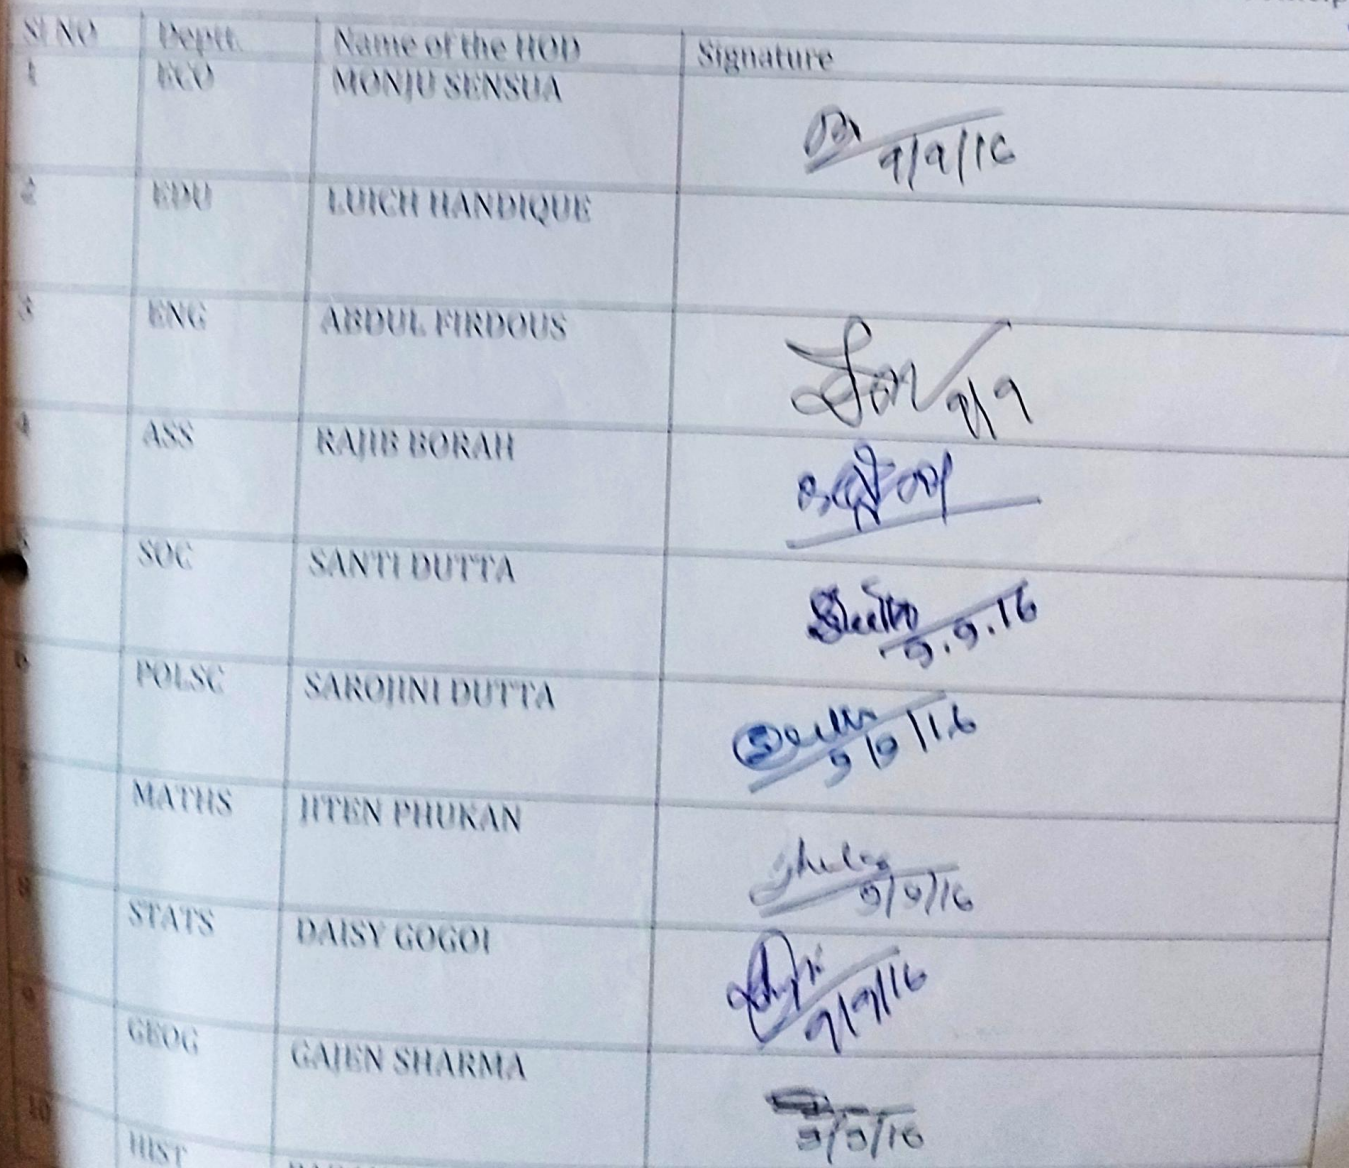 Sl NO Deptt. Name of the HOD Signature
1 ECO MONJU SENSUA
9/9/16
2 EDU LUICH HANDIQUE
3 ENG ABDUL FIRDOUS
9/9
4 ASS RAJIB BORAH
5 SOC SANTI DUTTA
9.9.16
6 POLSC SAROJINI DUTTA
9/9/16
7 MATHS JITEN PHUKAN
9/9/16
8 STATS DAISY GOGOI
9/9/16
9 GEOG GAJEN SHARMA
9/9/16
10 HIST